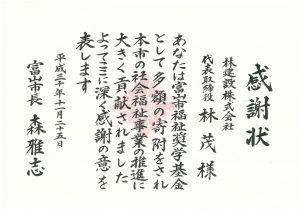 感謝状
林建設株式会社
代表取締役 林茂様
あなたは富山市福祉奨学基金
として多額の寄附をされ
本市の社会福祉事業の推進に
大きく貢献されました
よってここに深く感謝の意を
表します
平成三十年十一月二十五日
富山市長 森雅志